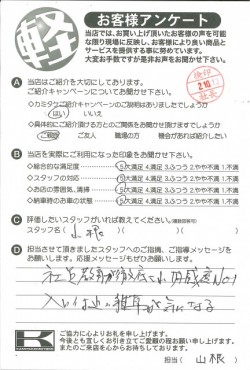 軽
お客様アンケート
当店では、お買い上げ頂いたお客様の声を可能
な限り現場に反映し、お客様により良い商品と
サービスを提供する事に努めています。
大変お手数ですが是非お声をお聞かせ下さい。
A 当店はご紹介を大切にしております。
ご紹介キャンペーンについてお聞かせ下さい
◇カミタケご紹介キャンペーンのご説明はありましたでしょうか
はい いいえ
◇具体的にご紹介頂ける方とのご関係をお聞かせ頂けますでしょうか
ご家族 ご友人 職場の方 機会があれば紹介したい
B 当店を実際にご利用になった印象をお聞かせ下さい。
◇総合的な満足度 5.大満足 4.満足 3.ふつう 2.やや不満 1.不満
◇スタッフの対応 5.大満足 4.満足 3.ふつう 2.やや不満 1.不満
◇お店の雰囲気、清掃 5.大満足 4.満足 3.ふつう 2.やや不満 1.不満
◇納車時のお車の状態 5.大満足 4.満足 3.ふつう 2.やや不満 1.不満
C 評価したいスタッフがいれば教えてください。(複数回答可)
スタッフ名( 山根 )
D 担当させて頂きましたスタッフへのご指摘、ご指導メッセージを
お願いします。応援メッセージもぜひお願いします。
社員教育が徹底
No1
ご協力に心よりお礼を申し上げます。
今後とも宜しくお引き立てご愛顧の程お願い申し上げます。
またのご来店を心からお待ちしております。
担当( 山根 )